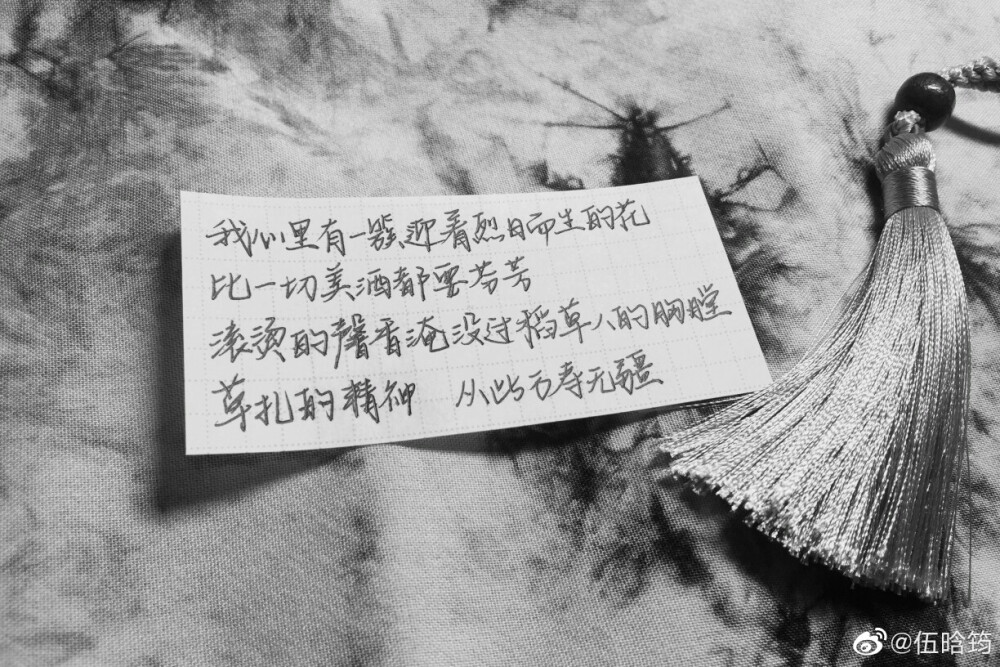 我心里有一簇迎着烈日而生的花
比一切美酒都要芬芳
滚烫的馨香淹没过稻草人的胸膛
草扎的精神 从此万寿无疆
@伍晗筠